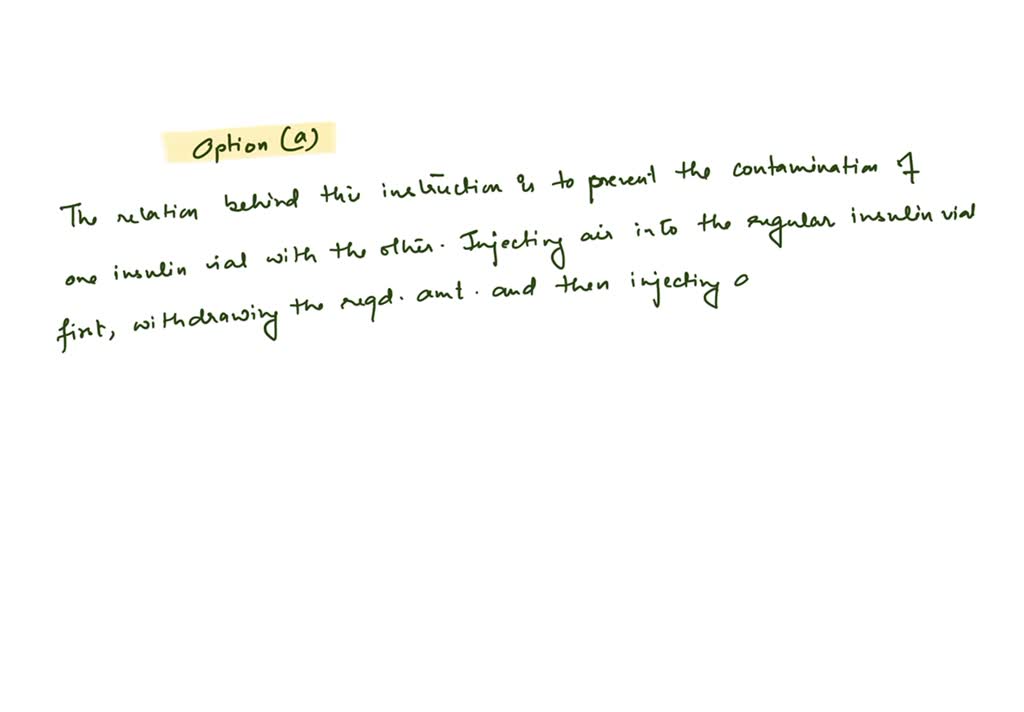 Option (a)
The relation behind this instruction is to prevent the contamination of
one insulin vial with the other. Injecting air into the regular insulin vial
first, withdrawing the reqd. amt. and then injecting a